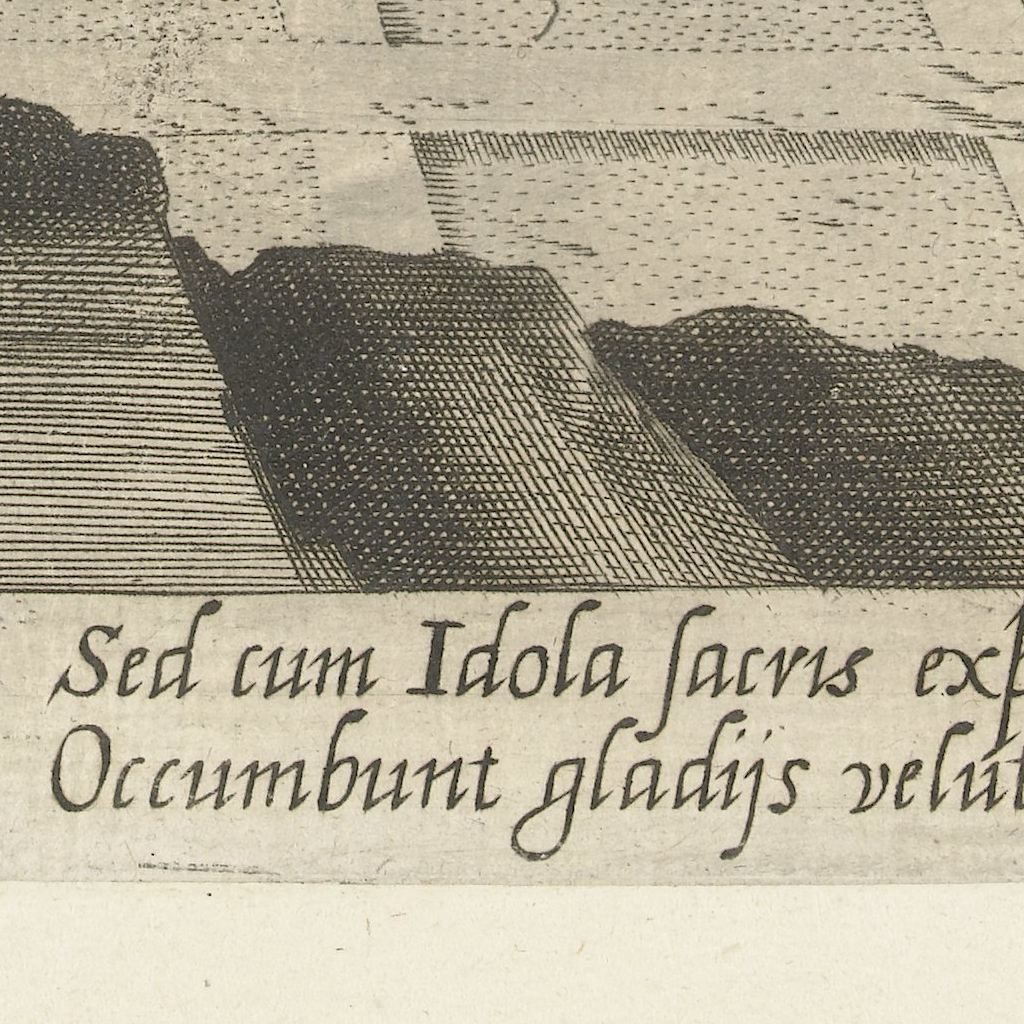 Sed cum Idola ſacris
Occumbunt gladijs velut